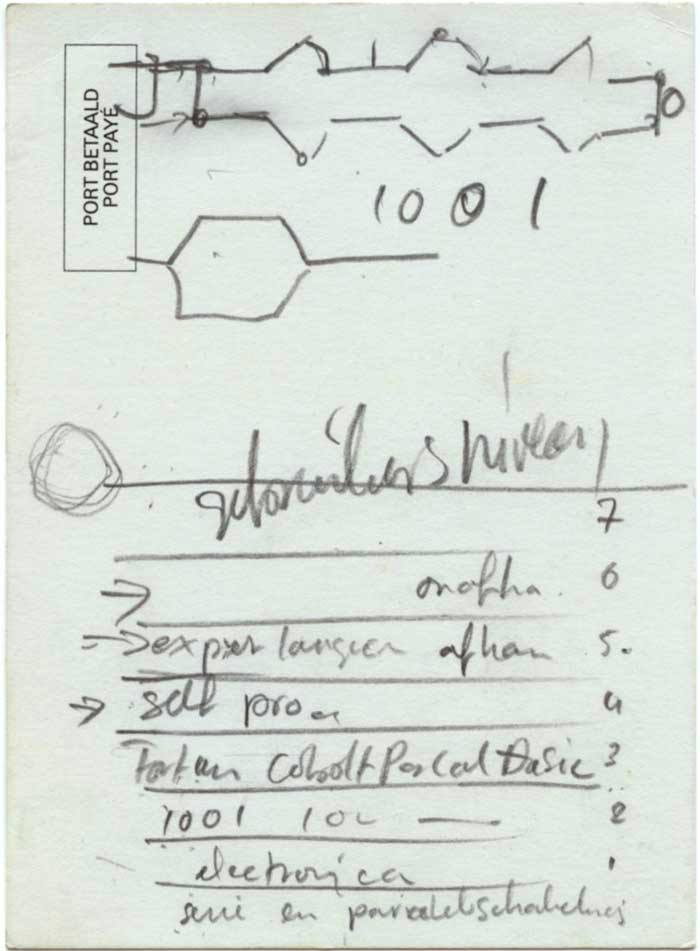 PORT BETAALD
PORT PAYÉ
0
1 0 0 1
gebruikers niveau
7
onafha. 6
expert langen afhan 5.
self pro 4
Fortran Cobolt Pascal Basic 3
1001 10 2
electronica 1
serie en parallelschakeling